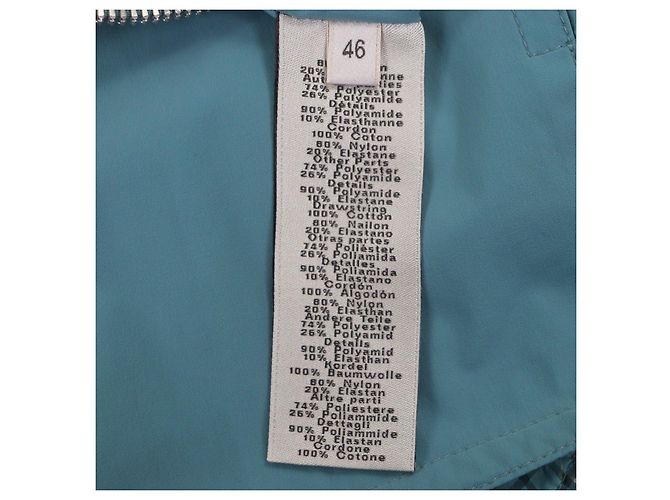 46
20%
74% Polyester
26% Polyamide
Détails
90% Polyamide
10% Elasthanne
Cordon
100% Coton
80% Nylon
20% Elastane
Other Parts
74% Polyester
26% Polyamide
Details
90% Polyamide
10% Elastane
Drawstring
100% Cotton
80% Nailon
20% Elastano
Otras partes
74% Poliéster
26% Poliamida
Detalles
90% Poliamida
10% Elastano
Cordón
100% Algodón
80% Nylon
20% Elasthan
Andere Teile
74% Polyester
26% Polyamid
Details
90% Polyamid
10% Elasthan
Kordel
100% Baumwolle
80% Nylon
20% Elastan
Altre parti
74% Poliestere
26% Poliammide
Dettagli
90% Poliammide
10% Elastan
Cordone
100% Cotone